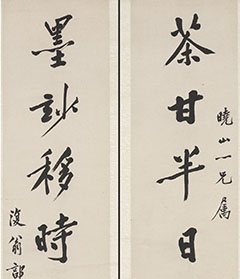 茶甘半日
曉山一兄屬
墨玅移時
復翁